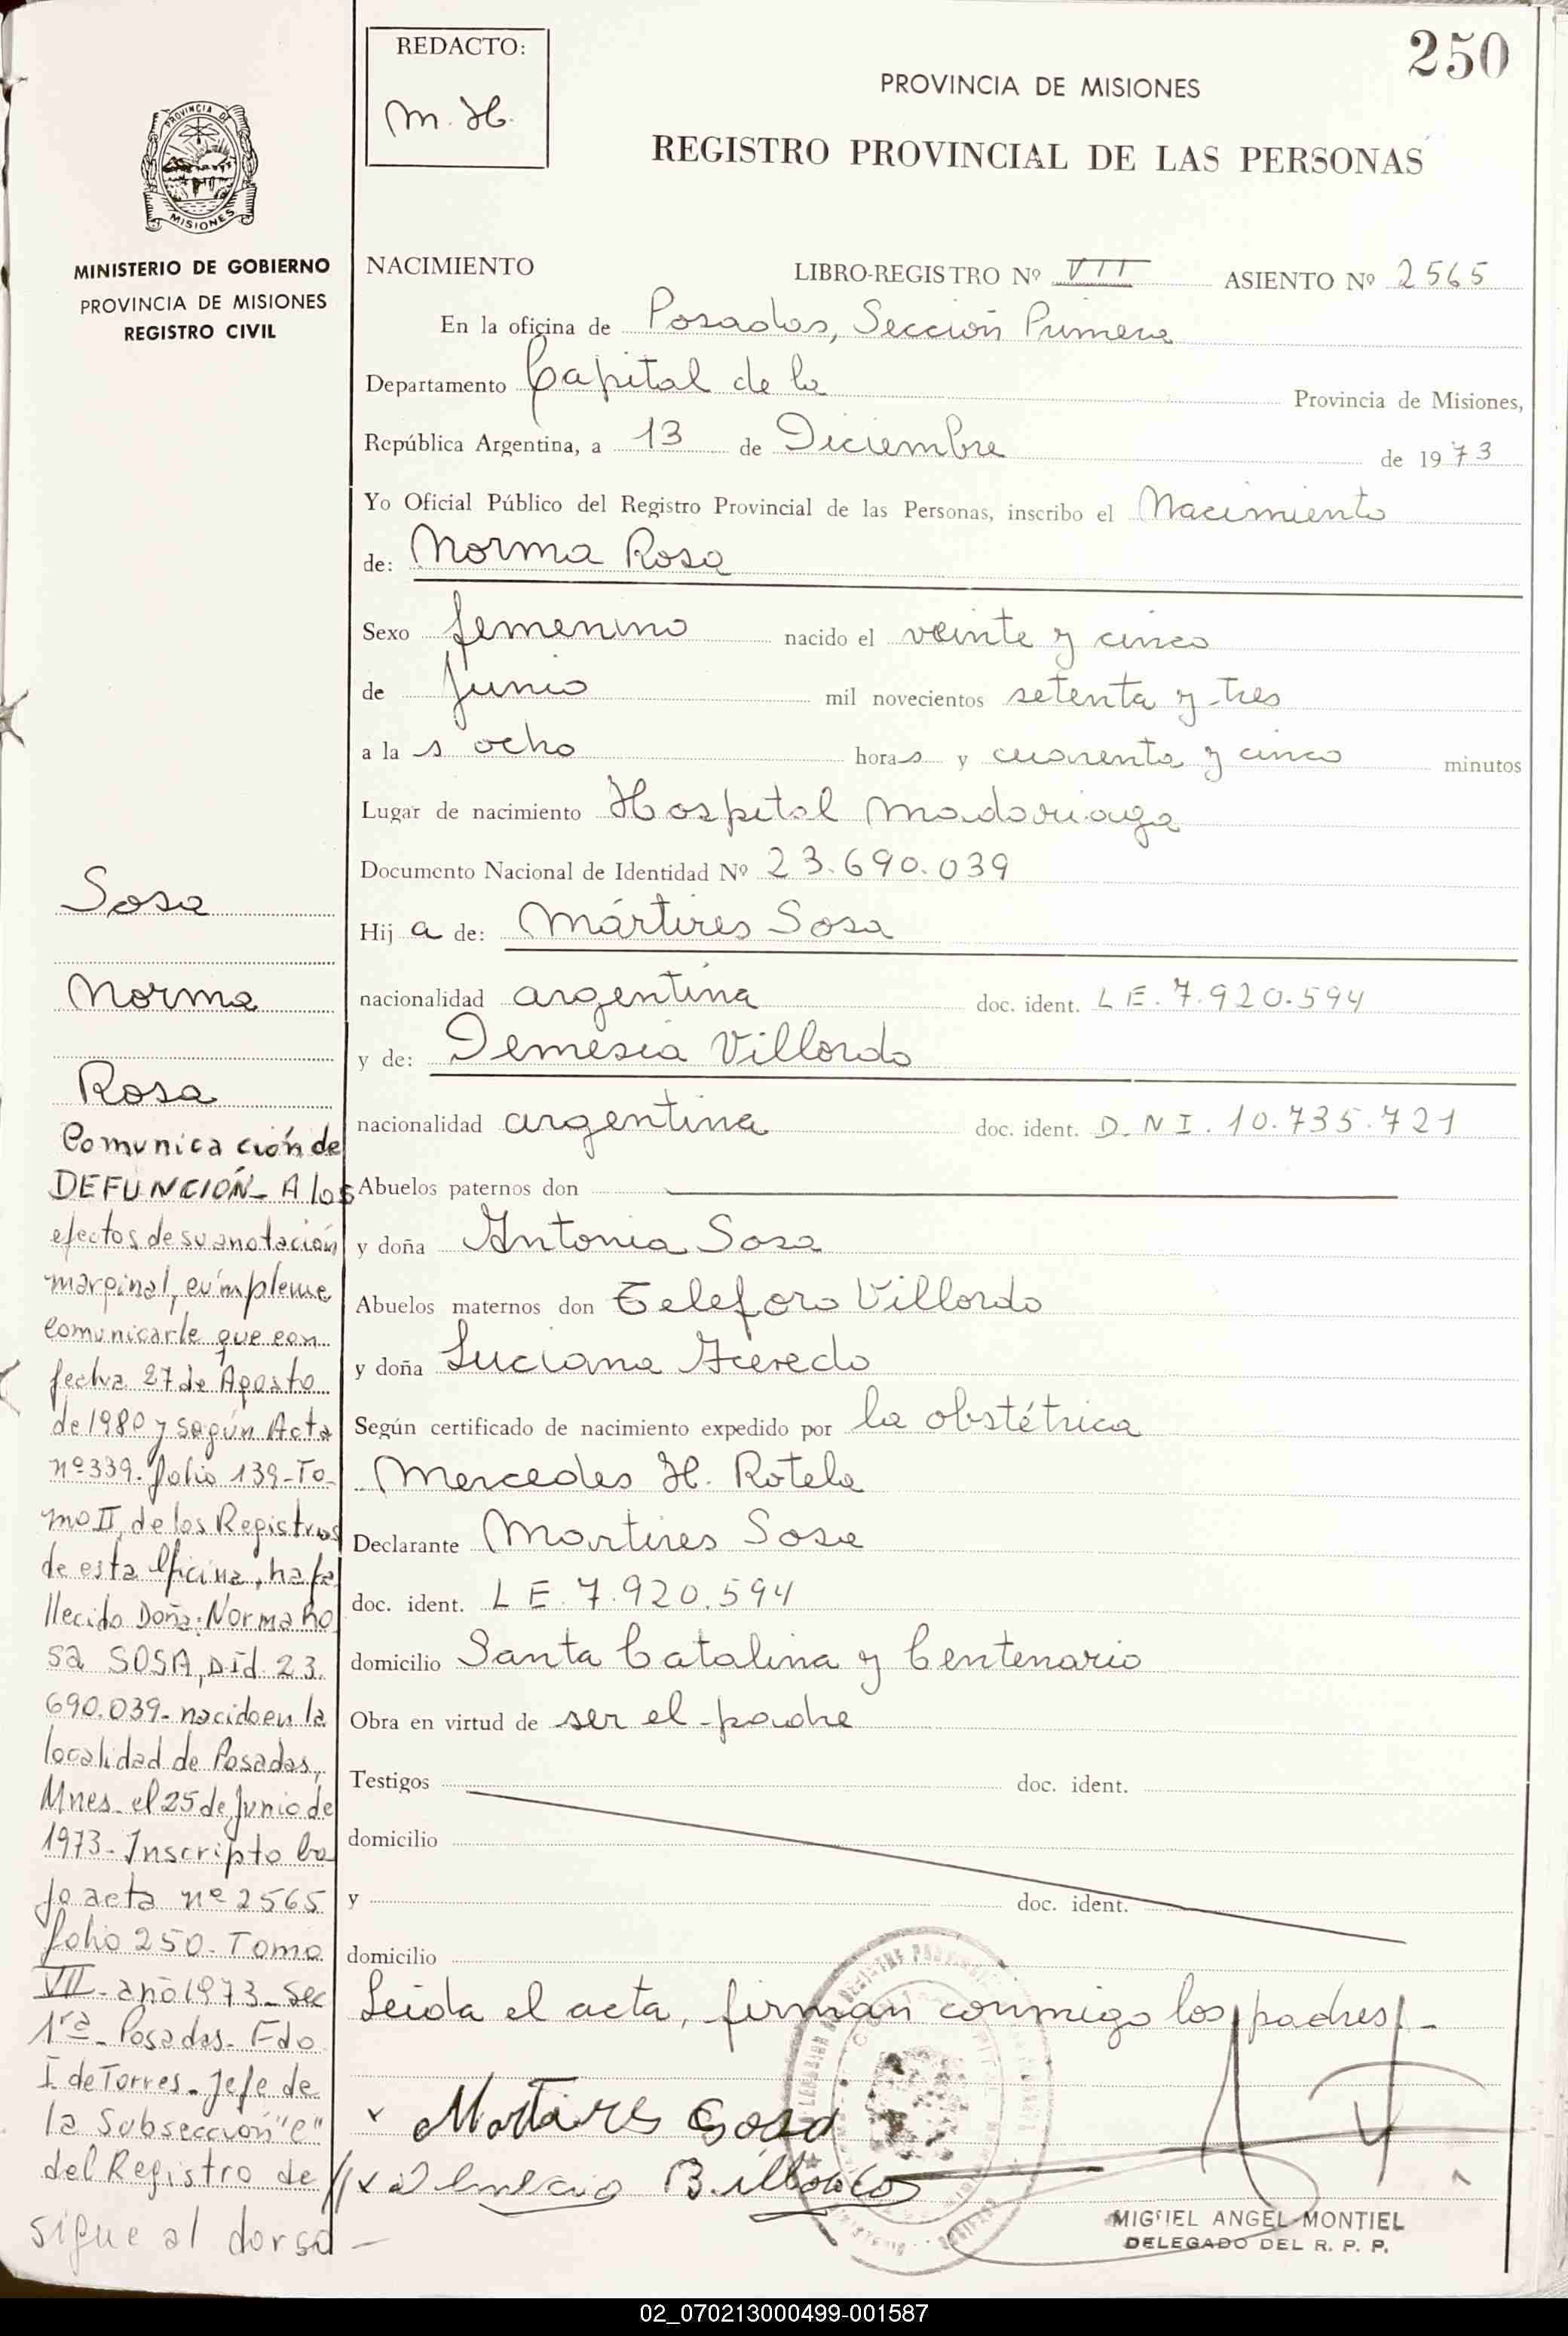 250
REDACTO:
M. H.
PROVINCIA DE MISIONES
REGISTRO PROVINCIAL DE LAS PERSONAS
PROVINCIA DE
MISIONES
MINISTERIO DE GOBIERNO
PROVINCIA DE MISIONES
REGISTRO CIVIL
NACIMIENTO LIBRO-REGISTRO Nº VII ASIENTO Nº 2565
En la oficina de Posadas, Sección Primera
Departamento Capital de la Provincia de Misiones,
República Argentina, a 13 de Diciembre de 1973
Yo Oficial Público del Registro Provincial de las Personas, inscribo el Nacimiento
de: Norma Rosa
Sexo femenino nacido el veinte y cinco
de Junio mil novecientos setenta y tres
a la s ocho horas y cuarenta y cinco minutos
Lugar de nacimiento Hospital Madariaga
Documento Nacional de Identidad Nº 23.690.039
Hij a de: Mártires Sosa
nacionalidad argentina doc. ident. L E. 7.920.594
y de: Demesia Villordo
nacionalidad argentina doc. ident. D. N I. 10.735.721
Abuelos paternos don
y doña Antonia Sosa
Abuelos maternos don Teleforo Villordo
y doña Luciana Acevedo
Según certificado de nacimiento expedido por la obstétrica
Mercedes H. Rotela
Declarante Martires Sosa
doc. ident. L E. 7.920.594
domicilio Santa Catalina y Centenario
Obra en virtud de ser el padre
Testigos doc. ident.
domicilio
y doc. ident.
domicilio
Leída el acta, firman conmigo los padres.-
x Martires Sosa
MIGUEL ANGEL MONTIEL
DELEGADO DEL R. P. P.
Sosa
Norma
Rosa
Comunicación de
DEFUNCIÓN- A los
efectos de su anotación
marginal, cúmpleme
comunicarle que con
fecha 27 de Agosto
de 1980 y según Acta
nº 339- folio 139- To-
mo II, de los Registros
de esta Oficina, ha fa
llecido Doña: Norma Ro
sa SOSA, DId. 23.
690.039- nacido en la
localidad de Posadas,
Mnes- el 25 de Junio de
1973- Inscripto ba
jo acta nº 2565
folio 250- Tomo
VII- año 1973- Sec
1ra- Posadas- Fdo
I. de Torres- Jefe de
la Subsección "C"
del Registro de //
sigue al dorso -
02_070213000499-001587